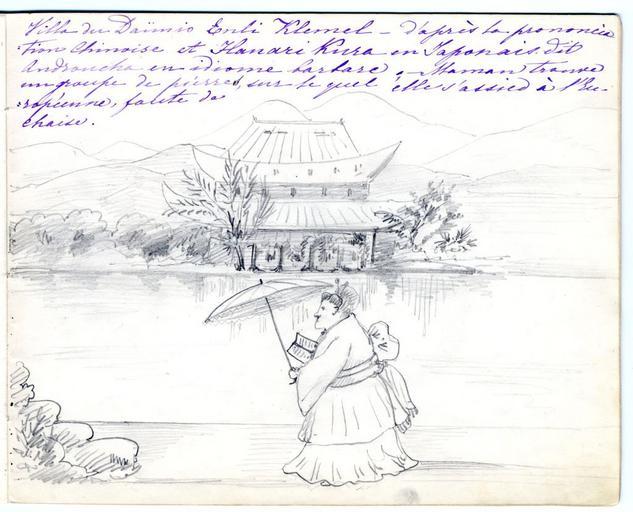 Villa du Daïmio Enli Klemel – d'après la prononcia
tion Chinoise et Hanari Kura en Japonais dit
Androucha en idiome barbare. Maman trouve
un groupe de pierres, sur le quel elle s'assied à l'Eu-
ropéenne, faute de
chaise.